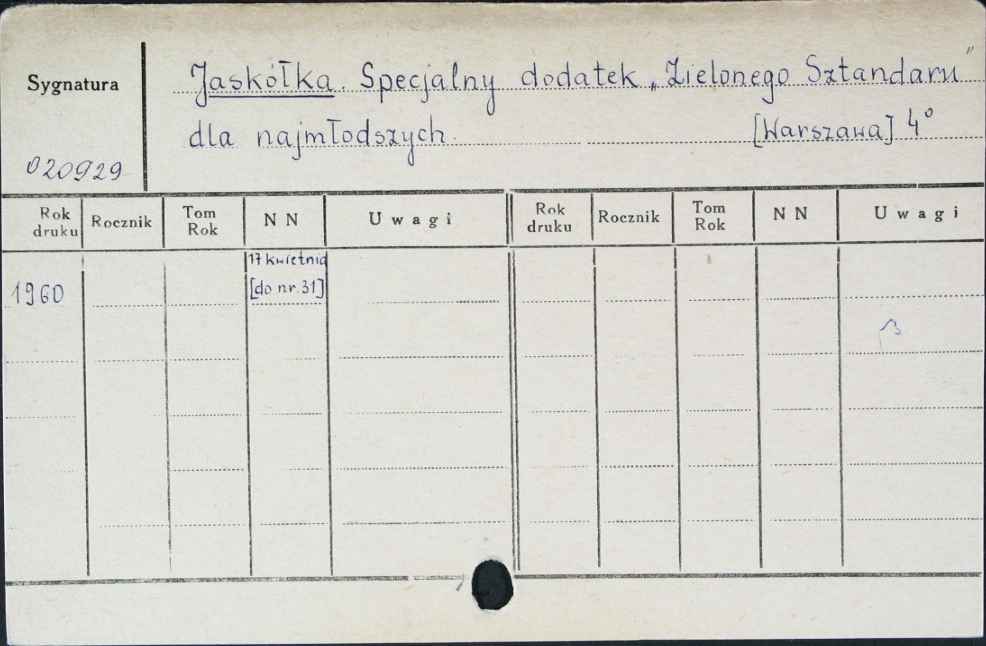 Sygnatura
Jaskółka. Specjalny dodatek „Zielonego Sztandaru”
dla najmłodszych. [Warszawa] 4°
020929
Rok druku Rocznik Tom Rok N N Uwagi Rok druku Rocznik Tom Rok N N Uwagi
17 kwietnia
1960 [do nr. 31]